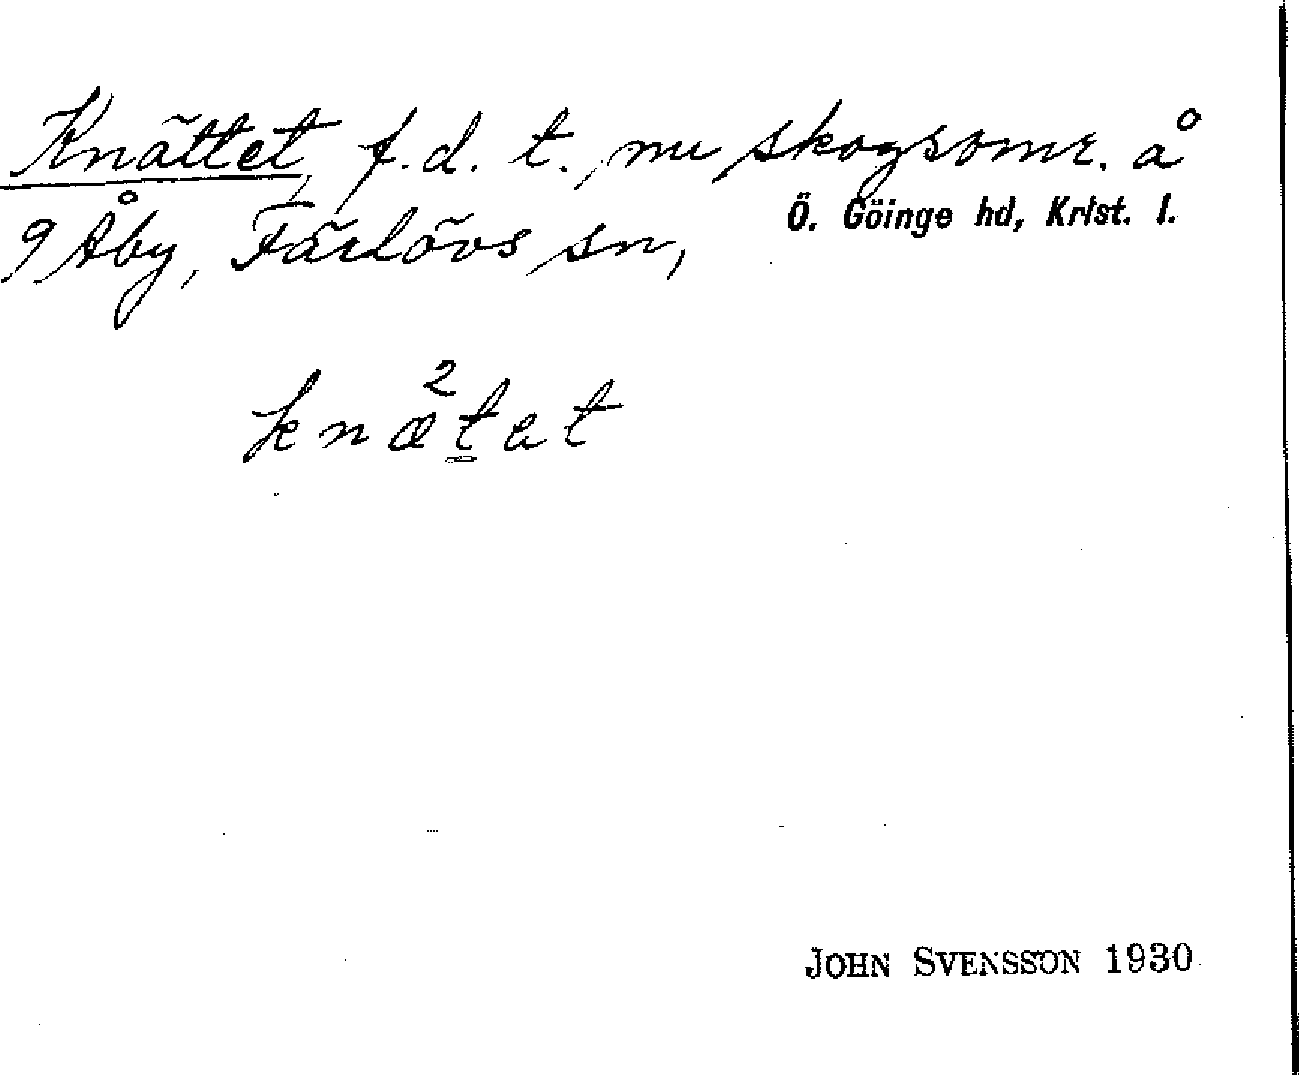 Knättet, f.d. t., nu skogsomr. å
9 Åby, Färlövs sn,
Ö. Göinge hd, Krist. l.
knæ²tət
JOHN SVENSSON 1930